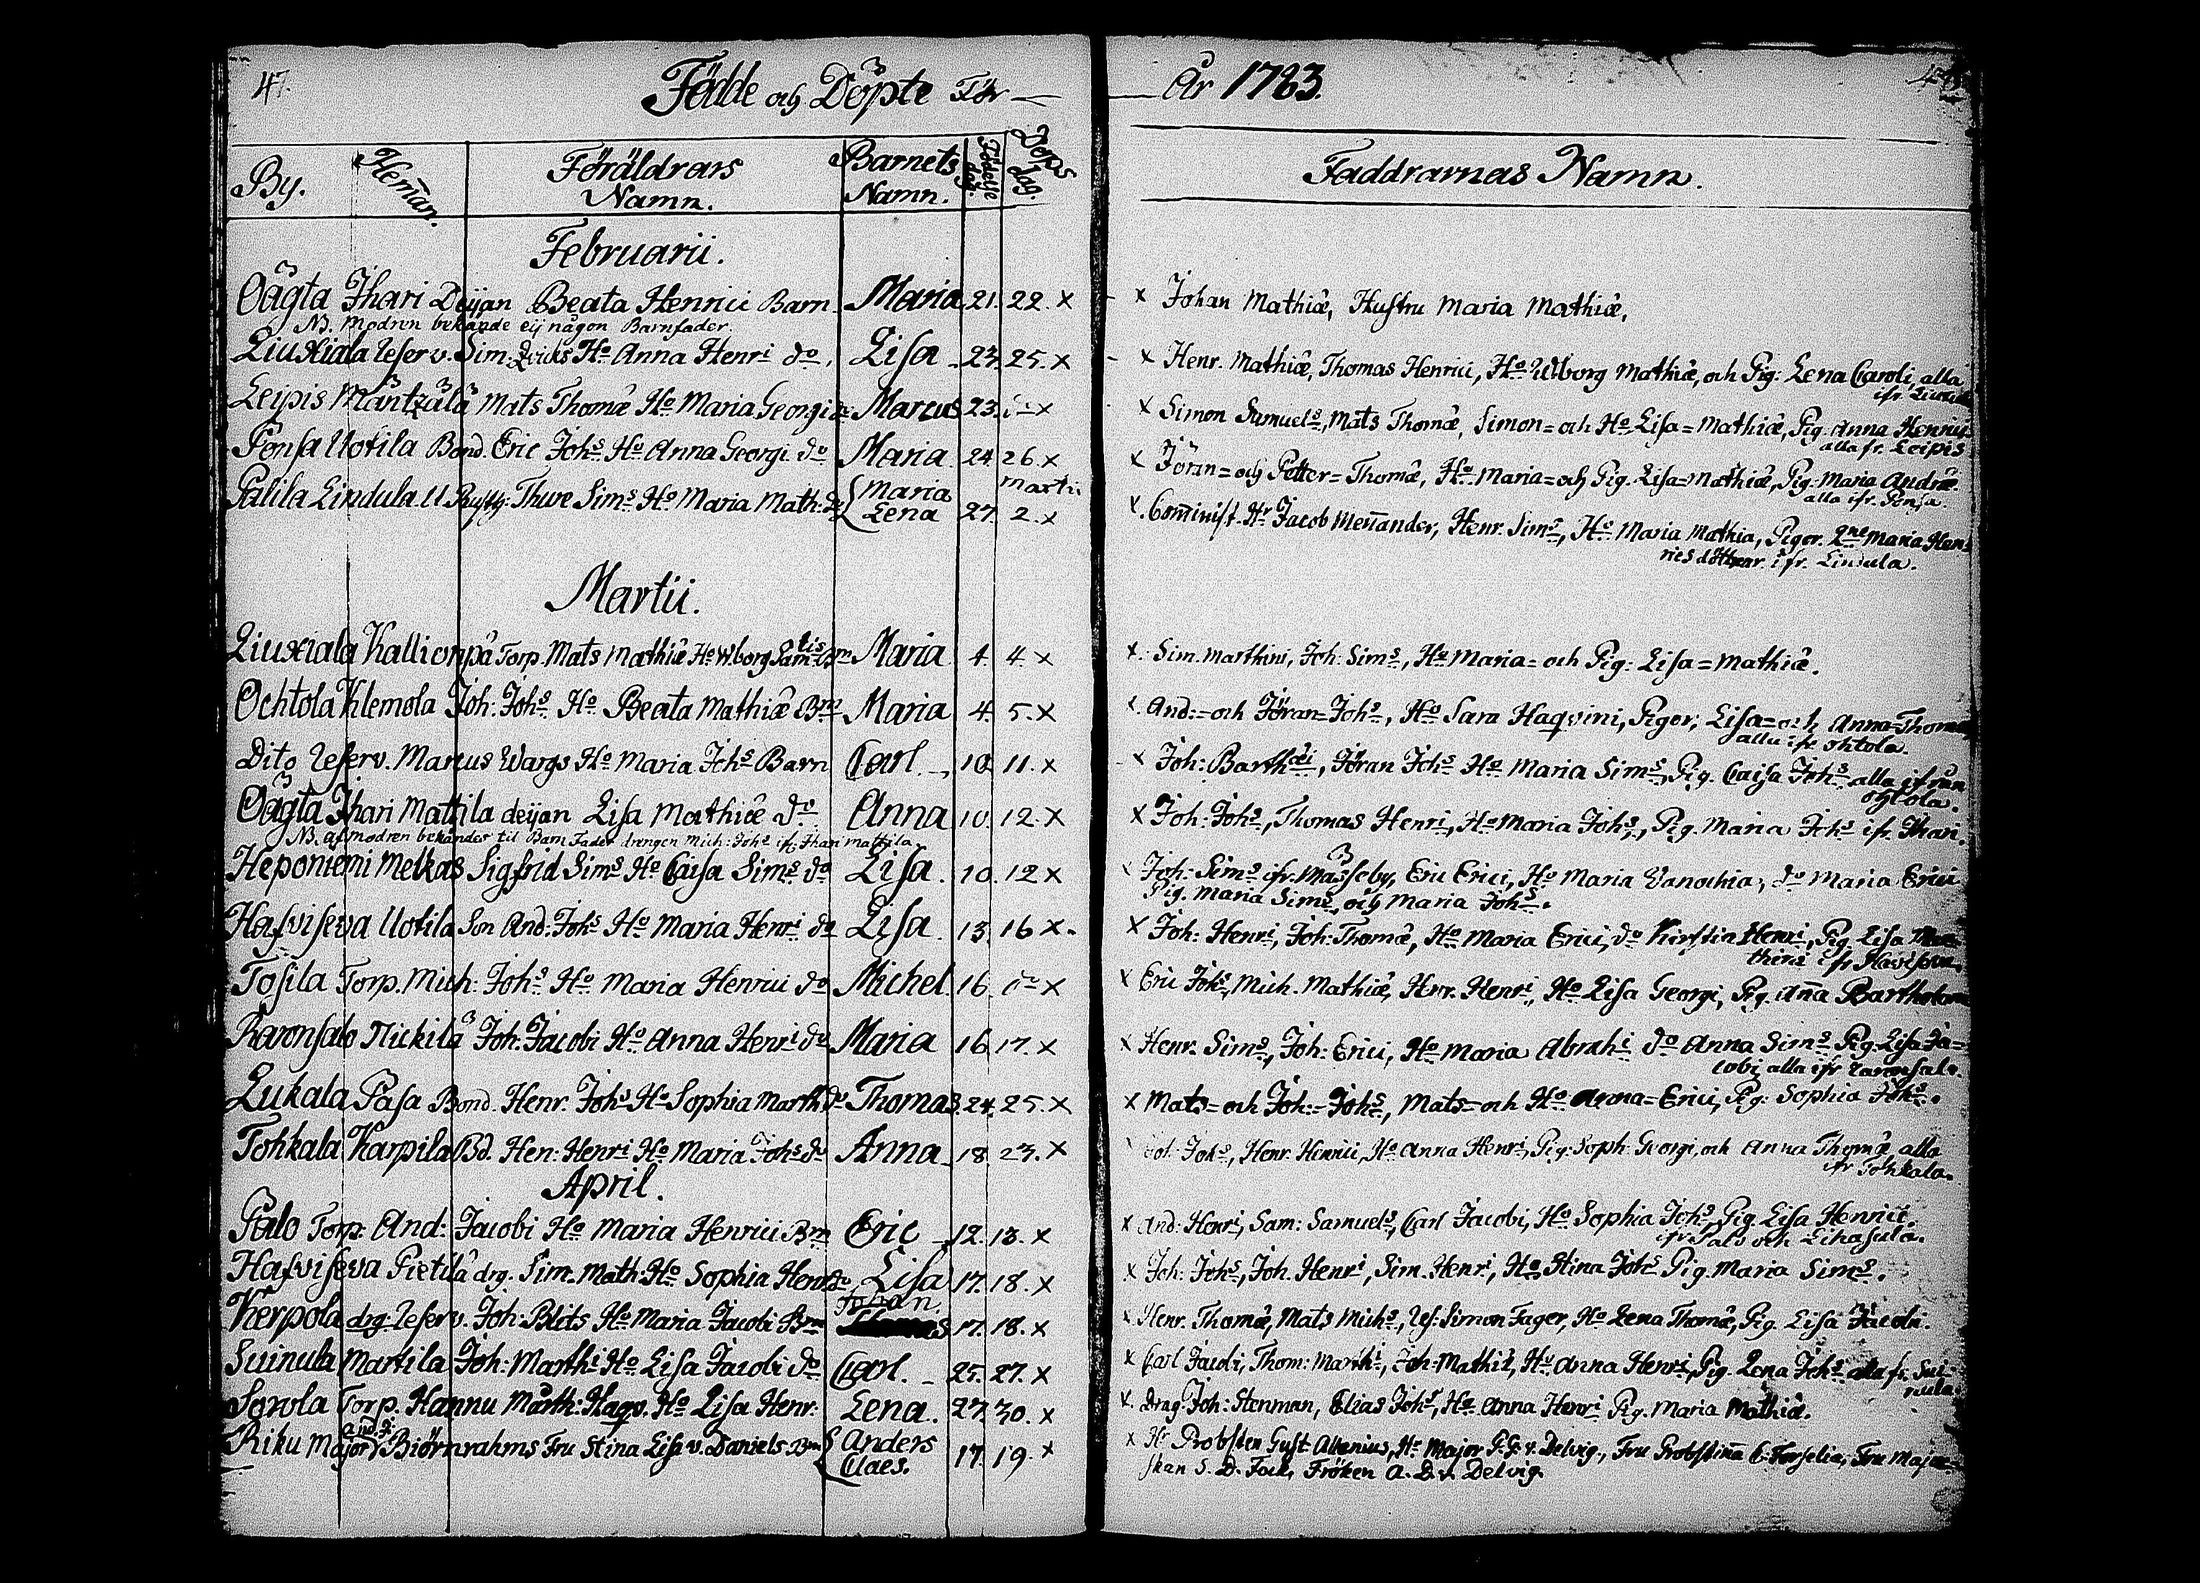 47.
Födde och Döpte För
By.
Heman.
Föräldrars
Namn.
Barnets
Namn.
Födelse
dag.
Döps
dag.
Februarii.
Oägta Jhari Deijan Beata Henrici Barn Maria 21. 22. x
NB. Modren bekände eij någon Barnfader.
Liuxiala Reserv. Sim: Ho Anna Henri do, Lisa 23. 25. x
Leipis Mäntzälä Mats Thomæ Ho Maria Georgi do Marcus 23. do x
Ponsa Uotila Bond. Eric Johs Ho Anna Georgi do Maria 24. 26. x
Martii
Palila Lindula U. Rustg: Thure Sims Ho Maria Math: do { Maria
Lena 27. 2. x
Martii.
Liuxiala Kallionpä Torp. Mats Mathiæ Ho Wborg Bm Maria 4. 4. x
Ochtola Klemola Joh: Johs Ho Beata Mathiæ Brn Maria 4. 5. x
Dito Reserv. Marcus Wargs Ho Maria Johs Barn Carl. 10. 11. x
Oägta Jhari Mattila deijan Lisa Mathiæ do Anna 10. 12. x
NB. af modren bekändes til Barn Fader drengen Mich: Johs ifr. Jhari mattila.
Heponiemi Melkas Sigfrid Sims Ho Caisa Sims do Lisa. 10. 12 x
Hafviseva Uotila Son And: Johs Ho Maria Henri do Lisa. 13. 16 x.
Tosila Torp. Mich: Johs Ho Maria Henrici do Michel. 16. do x
Raronsalo Nickilä Joh: Jacobi Ho Anna Henri do Maria 16. 17. x
Lukala Pasa Bond. Henr. Johs Ho Sophia Marth: do Thomas. 24. 25. x
Tohkala Karpila Bd. Hen: Henri Ho Maria Johs do Anna 18. 23. x
April.
Palo Torp. And: Jacobi Ho Maria Henrici Brn Eric 12. 13. x
Hafviseva Pietilä drg. Sim. Math: Ho Sophia Henr. do Lisa 17. 18. x
Johan.
Kerpola drg. Reserv. Joh: Blits Ho Maria Jacobi Brn 17. 18. x
Suinula Martila Joh: Marthi Ho Lisa Jacobi do Carl. 25. 27. x
Sorola Torp. Hannu Marth: Haqv. Ho Lisa Henr: Lena. 27. 30. x
And. J:
Riku Major Biörnrahms Fru Stina Lisa v. Daniels Brn { Anders
Claes. 17. 19. x
År 1783.
Faddrarnas Namn.
x Johan Mathiæ, Hustru Maria Mathiæ,
x Henr. Mathiæ, Thomas Henrici, Ho Wborg Mathiæ, och Pig: Lena Caroli, alla
ifr.
x Simon Samuels, Mats Thomæ, Simon= och Ho Lisa= Mathiæ, Pig. Anna Henrici
alla fr. Leipis
x Jöran= och Petter= Thomæ, Ho Maria= och Pig. Lisa= Mathiæ, Pig. Maria Andræ.
alla ifr. Ponsa.
x. Cominist. Hr Jacob Menander, Henr. Sims, Ho Maria Mathia, Pigor. 2ne Maria Hen=
rics döttrar. ifr. Lindula.
x. Sim. Marthini, Joh: Sims, Ho Maria= och Pig: Lisa= Mathiæ.
x. And:= och Jöran= Johs, Ho Sara Haqvini, Pigor: Lisa= och Anna= Thomæ
alla ifr ohtola.
x Joh: Barthði, Jöran Johs Ho Maria Sims, Pig. Caisa Johs alla ifrån
ohtola.
x Joh: Johs, Thomas Henri, Ho Maria Johs, Pig. Maria Johs ifr. Jhari.
x Joh: Sims ifr. Mässeby, Eric Erici, Ho Maria Vanochia, do Maria Erici
Pig. Maria Sims, och Maria Johs.
x Joh: Henri, Joh: Thomæ, Ho Maria Erici, do Kirstin Henri, Pig. Lisa Mar=
thini ifr Hafviseva.
x Eric Johs, Mich. Mathiæ, Henr. Henri, Ho Lisa Georgi, Pig. Aña Bartholom
x Henr. Sims, Joh: Erici, Ho Maria Abrahi do Anna Sims Pig. Lisa Ja=
cobi, alla ifr raronsalo.
x Mats= och Joh:= Johs, Mats= och Ho Anna= Erici, Pig. Sophia Johs.
x Joh: Johs, Henr. Henrici, Ho Anna Henri, Pig: Soph: Georgi, och Anna Thomæ alla
ifr Tohkala.
x And: Henri, Sam: Samuels, Carl Jacobi, Ho Sophia Johs Pig. Lisa Henrici.
ifr Palo och Lihasula.
x Joh: Johs, Joh. Henri, Sim. Henri, Ho Stina Johs Pig. Maria Sims.
x Henr. Thomæ, Mats Michs, Res: Simon Fager, Ho Lena Thomæ, Pig. Lisa Jacobi.
x Carl Jacobi, Thom: Marthi, Joh: Mathiæ, Ho Anna Henri, Pig. Lena Johs alla fr. Sui=
nula.
x. Drag. Joh: Stenman, Elias Johs, Ho Anna Henri Pig. Maria Mathiæ.
x Hr Probsten Gust: Allenius, Hr Major G. G. v. Delvig, Fru Probstiña C. Forselia, Fru Major=
skan S. D. Fock, Fröken A. D. v. Delvig.